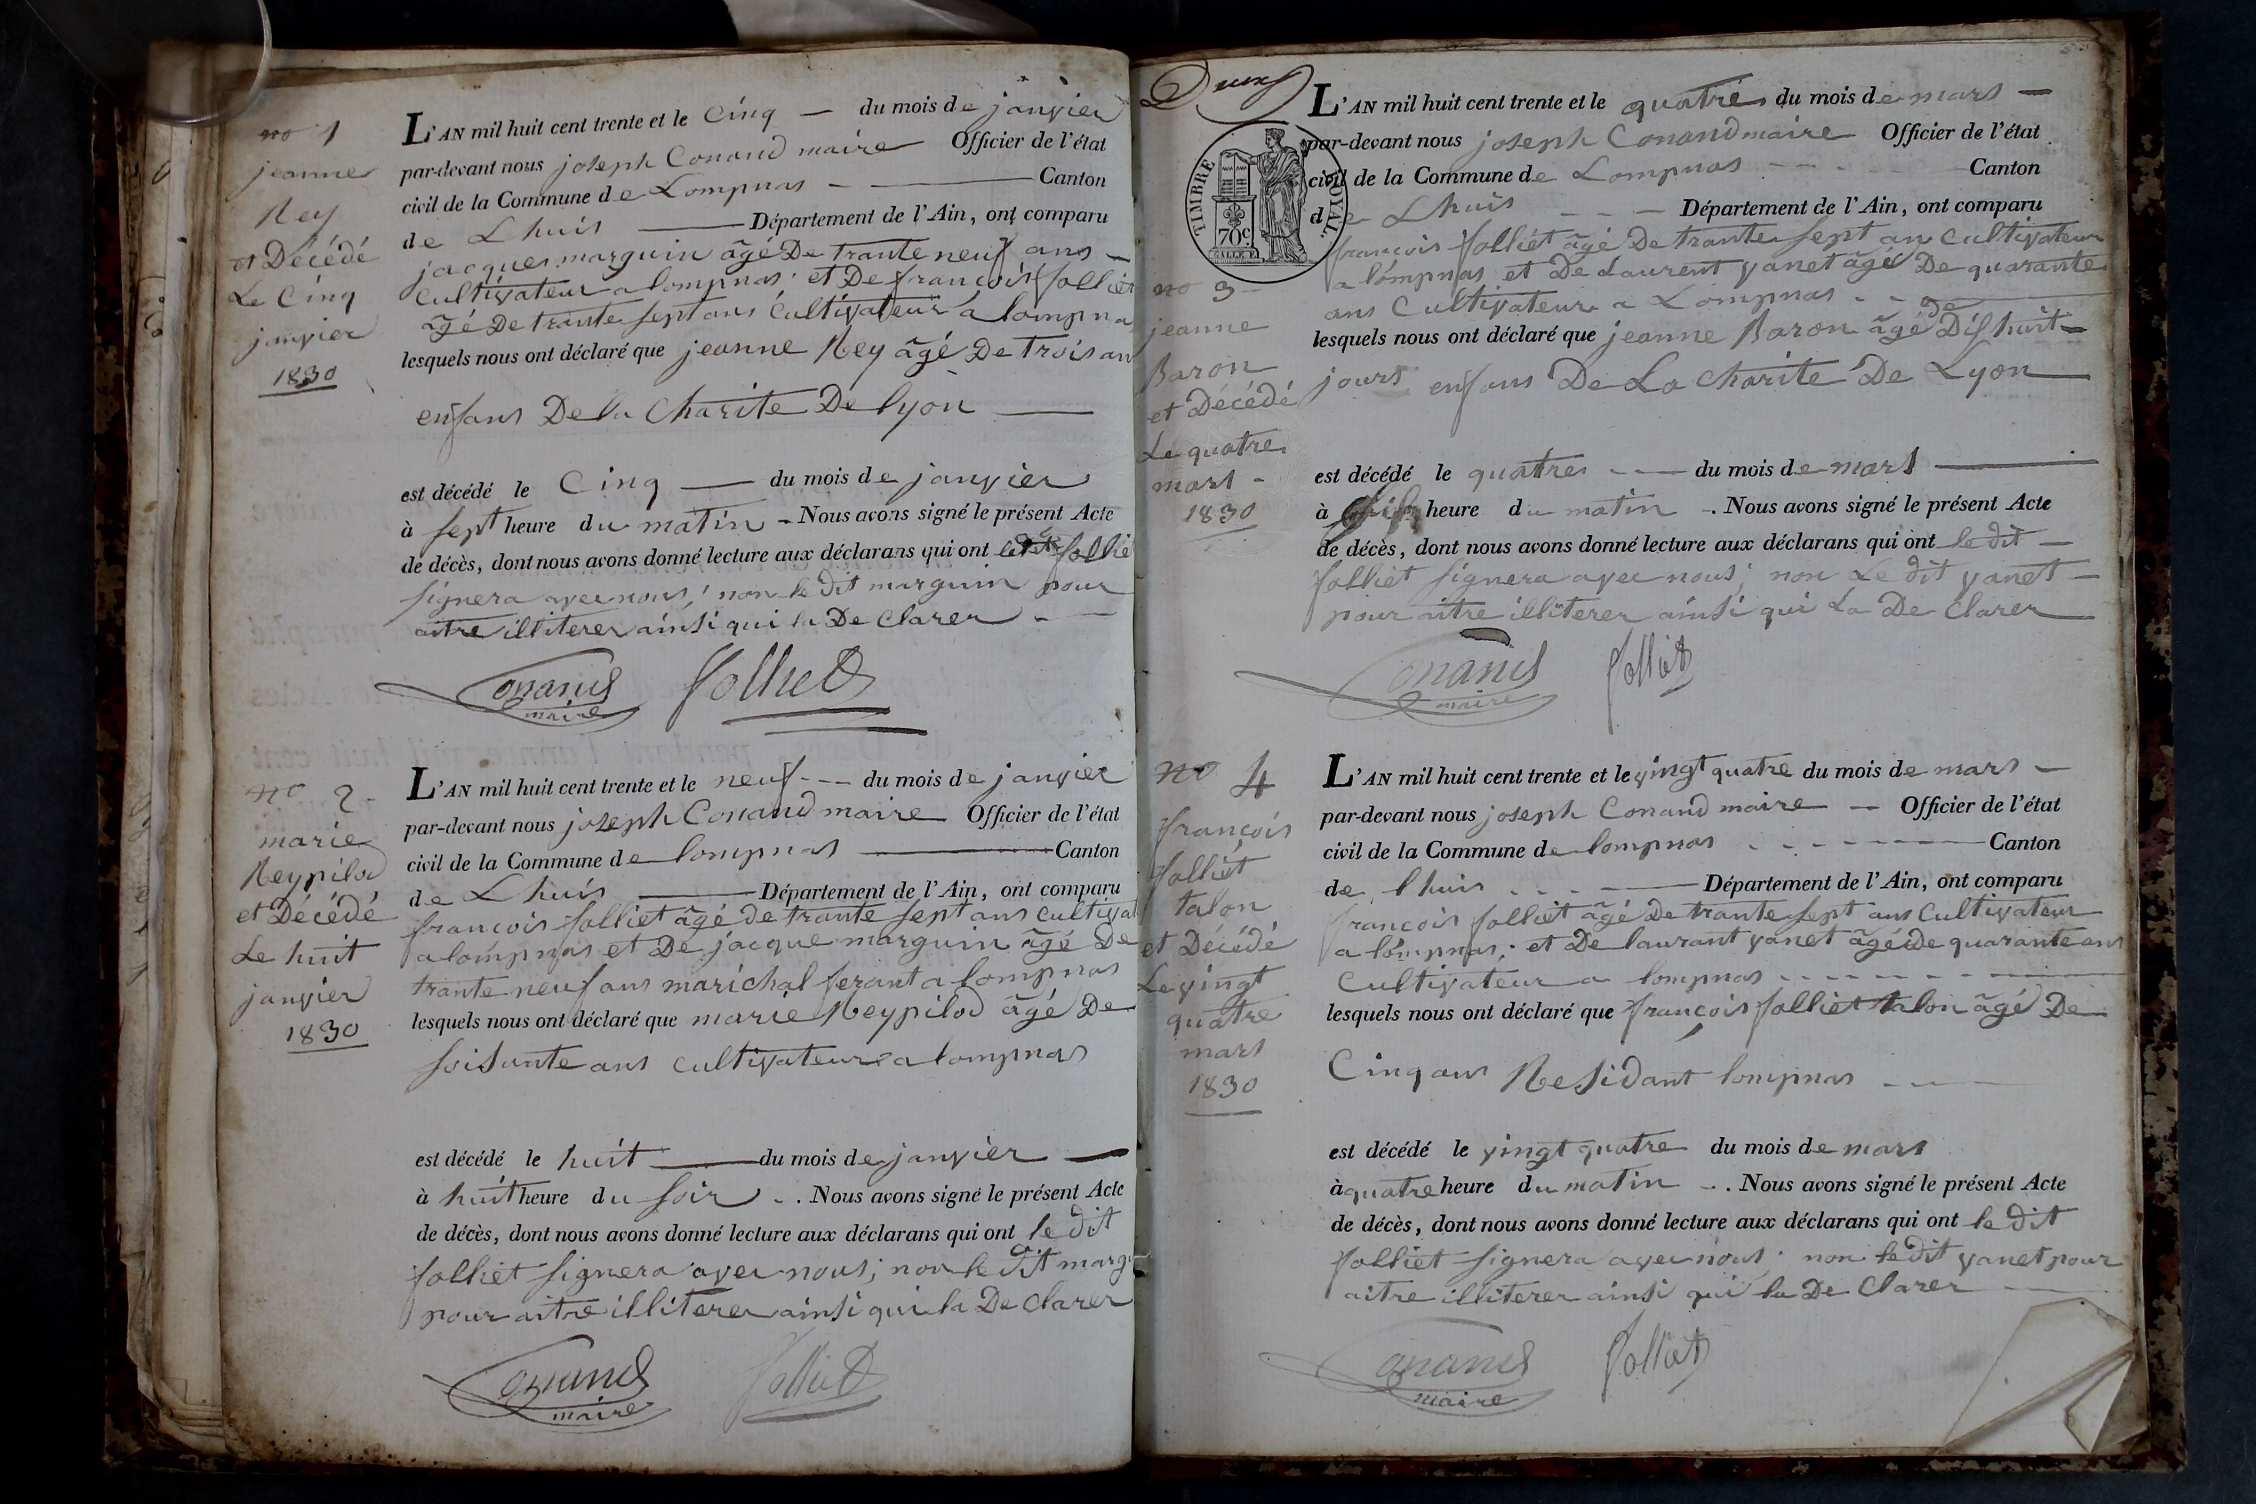 no 1
jeanne
Rey
et Décédé
Le Cinq
janvier
1830
L'AN mil huit cent trente et le Cinq — du mois de janvier
par-devant nous joseph Conand maire Officier de l'état
civil de la Commune de Lompnas - — Canton
de Lhuis — Département de l'Ain, ont comparu
jacques marguin âgé De trante neuf ans —
Cultivateur a lompnas et De françois folliet
âgé De trante sept ans Cultivateur a lompna
lesquels nous ont déclaré que jeanne Rey âgé De trois an
enfans De la Charite De lyon —
est décédé le Cinq — du mois de janvier
à sept heure du matin - Nous avons signé le présent Acte
de décès, dont nous avons donné lecture aux déclarans qui ont folliè
signera avec nous; non le dit marguin pour
aitre illiterer ainsi qui la De Clarer - —
Conand folliet
maire
no 2 -
marie
Reypilod
et Décédé
Le huit
janvier
1830
L'AN mil huit cent trente et le neuf - - - du mois de janvier
par-devant nous joseph Conand maire Officier de l'état
civil de la Commune de lompnas — Canton
de Lhuis — Département de l'Ain, ont comparu
françois folliet âgé de trante sept ans cultivat
a lompnas et De jacque marguin âgé De
trante neuf ans marichal ferant a lompnas
lesquels nous ont déclaré que marie Reypilod âgé De
soisante ans cultivateur a lompnas
est décédé le huit — du mois de janvier —
à huit heure du soir - . Nous avons signé le présent Acte
de décès, dont nous avons donné lecture aux déclarans qui ont le dit
folliet signera avec nous; non le dit margu
pour aitre illiterer ainsi qui la De Clarer
Conand folliet
maire
Deux
TIMBRE ROYAL
70c
no 3 -
jeanne
Baron
et Décédé
Le quatre
mars -
1830
L'AN mil huit cent trente et le quatre du mois de mars —
par-devant nous joseph Conand maire Officier de l'état
civil de la Commune de Lompnas - - - - Canton
de Lhuis - - — Département de l'Ain, ont comparu
françois folliet âgé De trante sept ans Cultivateur
a lompnas et De Laurent vanet âgé De quarante
ans Cultivateur a Lompnas - - —
lesquels nous ont déclaré que jeanne Baron âgé de Dis huit —
jours enfans De La Charite De Lyon —
est décédé le quatre - — du mois de mars —
à heure du matin - . Nous avons signé le présent Acte
de décès, dont nous avons donné lecture aux déclarans qui ont le dit —
folliet signera avec nous; non Le dit vanet —
pour aitre illiterer ainsi qui La De Clarer —
Conand folliet
maire
no 4
françois
folliet
talon
et Décédé
Le vingt
quatre
mars
1830
L'AN mil huit cent trente et le vingt quatre du mois de mars —
par-devant nous joseph Conand maire — Officier de l'état
civil de la Commune de lompnas - - - - — Canton
de lhuis - - - — Département de l'Ain, ont comparu
françois folliet âgé De trante sept ans Cultivateur
a lompnas; et De laurant vanet âgé de quarante ans
Cultivateur a lompnas - - - - - - —
lesquels nous ont déclaré que françois folliet talon âgé De
Cinq ans Residant lompnas - - —
est décédé le vingt quatre du mois de mars
à quatre heure du matin - . Nous avons signé le présent Acte
de décès, dont nous avons donné lecture aux déclarans qui ont le dit
folliet signera avec nous; non le dit vanet pour
aitre illiterer ainsi qui la De Clarer —
Conand folliet
maire